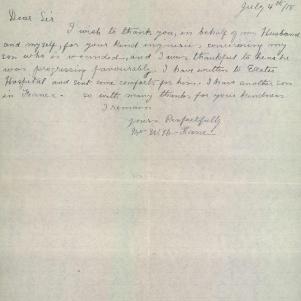 July 4th/18
Dear Sir
I wish to thank you, on behalf of my Husband
and myself, for your kind enquiries, concerning my
son who is wounded, and I was thankful to hear he
was progressing favourably. I have written to Exeter
Hospital and sent some comforts for him. I have another son
in France - so with many thanks, for your kindness
I remain
yours Respectfully
Mrs W H